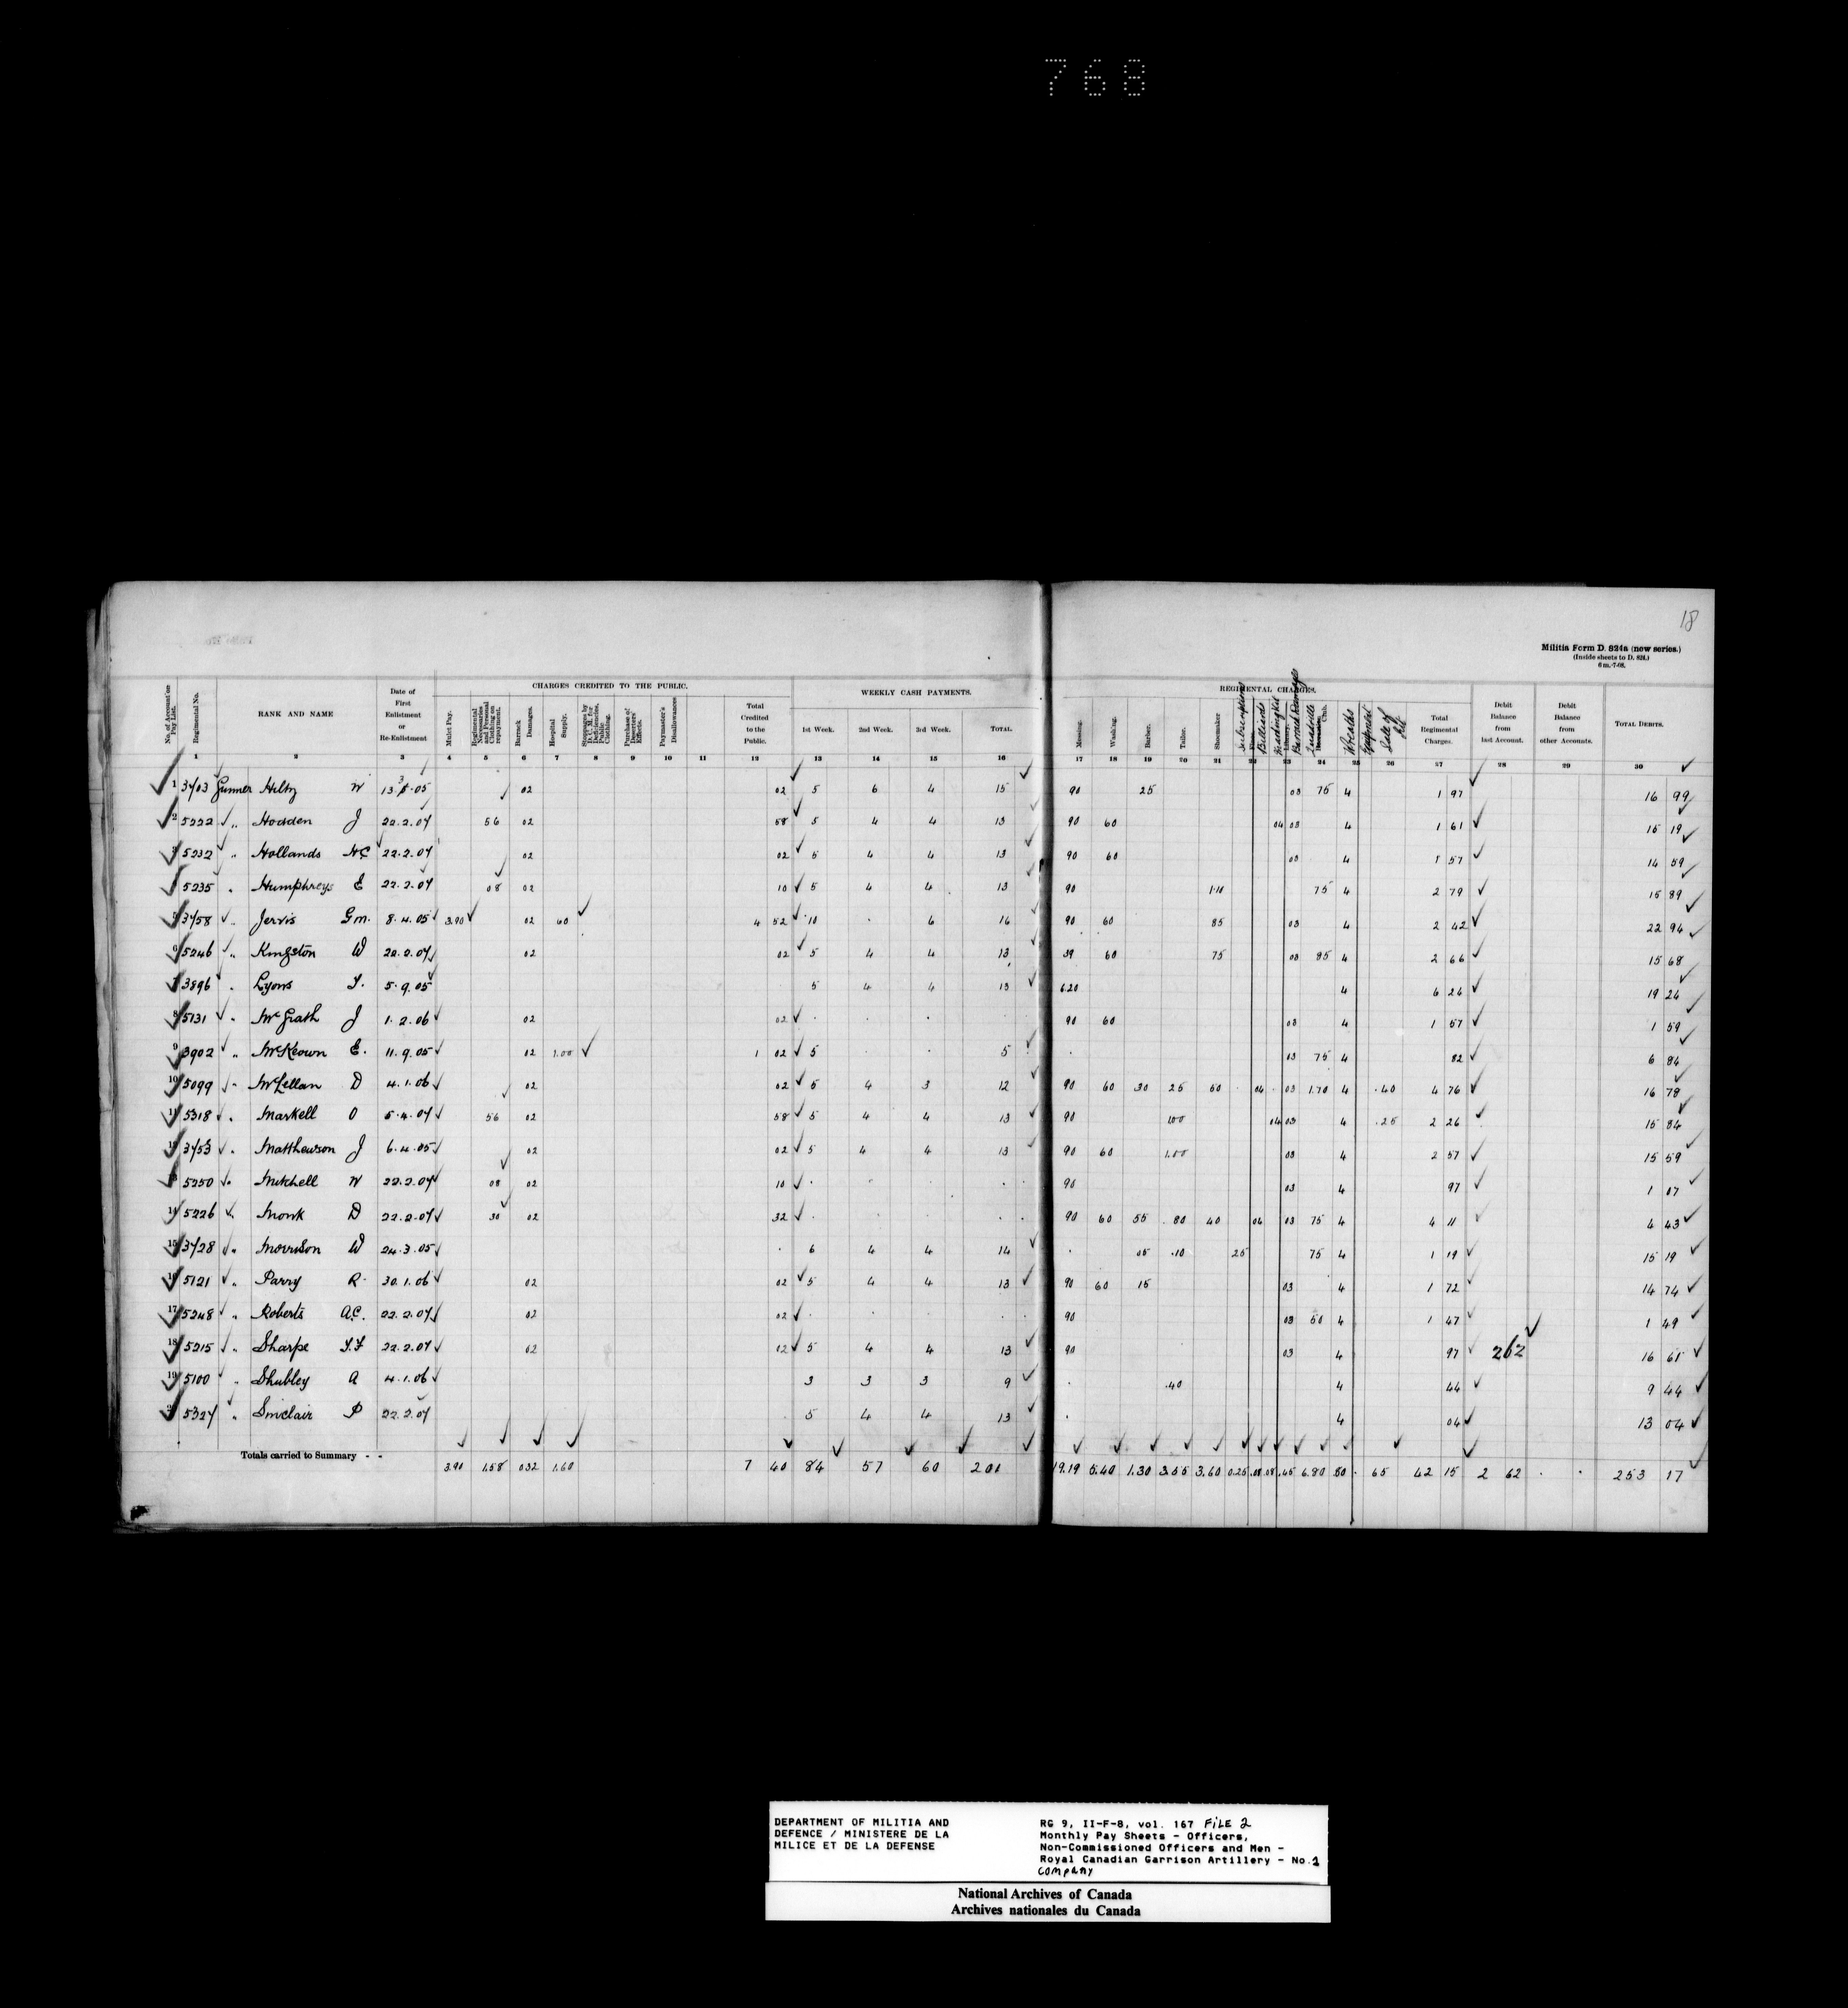 768
18
Militia Form D. 824a (new series.)
(Inside sheets to D. 824.)
6 m.-7-08.
CHARGES CREDITED TO THE PUBLIC. WEEKLY CASH PAYMENTS. REGIMENTAL CHARGES.
No. of Account on Pay List. Regimental No. RANK AND NAME Date of First Enlistment or Re-Enlistment Mulct Pay. Regimental Necessaries and Personal Clothing on repayment. Barrack Damages. Hospital Supply. Stoppages by D.C.M. for Deficiencies, Public Clothing. Purchase of Deserters' Effects. Paymaster's Disallowances Total Credited to the Public. 1st Week. 2nd Week. 3rd Week. TOTAL. Messing. Washing. Barber. Tailor. Shoemaker Subscriptions Billiards Barrack Damages Quadrille Club. Wreaths Sale of Total Regimental Charges. Debit Balance from last Account. Debit Balance from other Accounts. TOTAL DEBITS.
1 2 3 4 5 6 7 8 9 10 11 12 13 14 15 16 17 18 19 20 21 22 23 24 25 26 27 28 29 30
1 3403 Gunner Hiltz W 13.3.05 02 02 5 6 4 15 90 25 03 75 4 1 97 16 99
2 5222 " Hodden J 22.2.07 56 02 58 5 4 4 13 90 60 04 03 4 1 61 15 19
3 5232 " Hollands H.C 22.2.07 02 02 5 4 4 13 90 60 03 4 1 57 14 59
5235 " Humphreys E 22.2.07 08 02 10 5 4 4 13 90 1.10 75 4 2 79 15 89
5 3458 " Jervis G.m. 8.4.05 3.90 02 60 4 52 10 . 6 16 90 60 85 03 4 2 42 22 94
6 5246 " Kingston W 22.2.07 02 02 5 4 4 13 39 60 75 03 85 4 2 66 15 68
7 3896 " Lyons 5.9.05 5 4 4 13 6.20 4 6 24 19 24
8 5131 " McGrath J 1.2.06 02 02 . . . 90 60 03 4 1 57 1 59
9 3902 " McKeown E. 11.9.05 02 1.00 1 02 5 . . 5 . 03 75 4 82 6 84
10 5099 " McLellan D 4.1.06 02 02 5 4 3 12 90 60 30 25 50 04 03 1.70 4 .40 4 76 16 78
11 5318 " Markell O 5.4.07 56 02 58 5 4 4 13 90 1.00 04 03 4 .25 2 26 15 84
12 3453 " Matthewson J 6.4.05 02 02 5 4 4 13 90 60 1.00 03 4 2 57 15 59
13 5250 " Mitchell W 22.2.07 08 02 10 . . . . 90 03 4 97 1 07
14 5226 " Monk D 22.2.07 30 02 32 . . . . 90 60 55 80 40 04 03 75 4 4 11 4 43
15 3428 " Morrison W 24.3.05 . 6 4 4 14 . 05 .10 25 75 4 1 19 15 19
16 5121 " Parry R. 30.1.06 02 02 5 4 4 13 90 60 15 03 4 1 72 14 74
17 5248 " Roberts A.C. 22.2.07 02 02 . . . . 90 03 50 4 1 47 1 49
18 5215 " Sharpe 22.2.07 02 02 5 4 4 13 90 03 4 97 262 16 61
19 5100 " Shubley A 4.1.06 3 3 3 9 . .40 4 44 9 44
5327 " Sinclair P 22.2.07 5 4 4 13 . 4 04 13 04
Totals carried to Summary - - 3.90 1.58 0.32 1.60 7 40 84 57 60 201 19.19 5.40 1.30 3.55 3.60 0.25 .08 .08 .45 6.80 80 . 65 42 15 2 62 . . 253 17
DEPARTMENT OF MILITIA AND
DEFENCE / MINISTERE DE LA
MILICE ET DE LA DEFENSE
RG 9, II-F-8, vol. 167 FILE 2
Monthly Pay Sheets - Officers,
Non-Commissioned Officers and Men -
Royal Canadian Garrison Artillery - No.1
Company
National Archives of Canada
Archives nationales du Canada